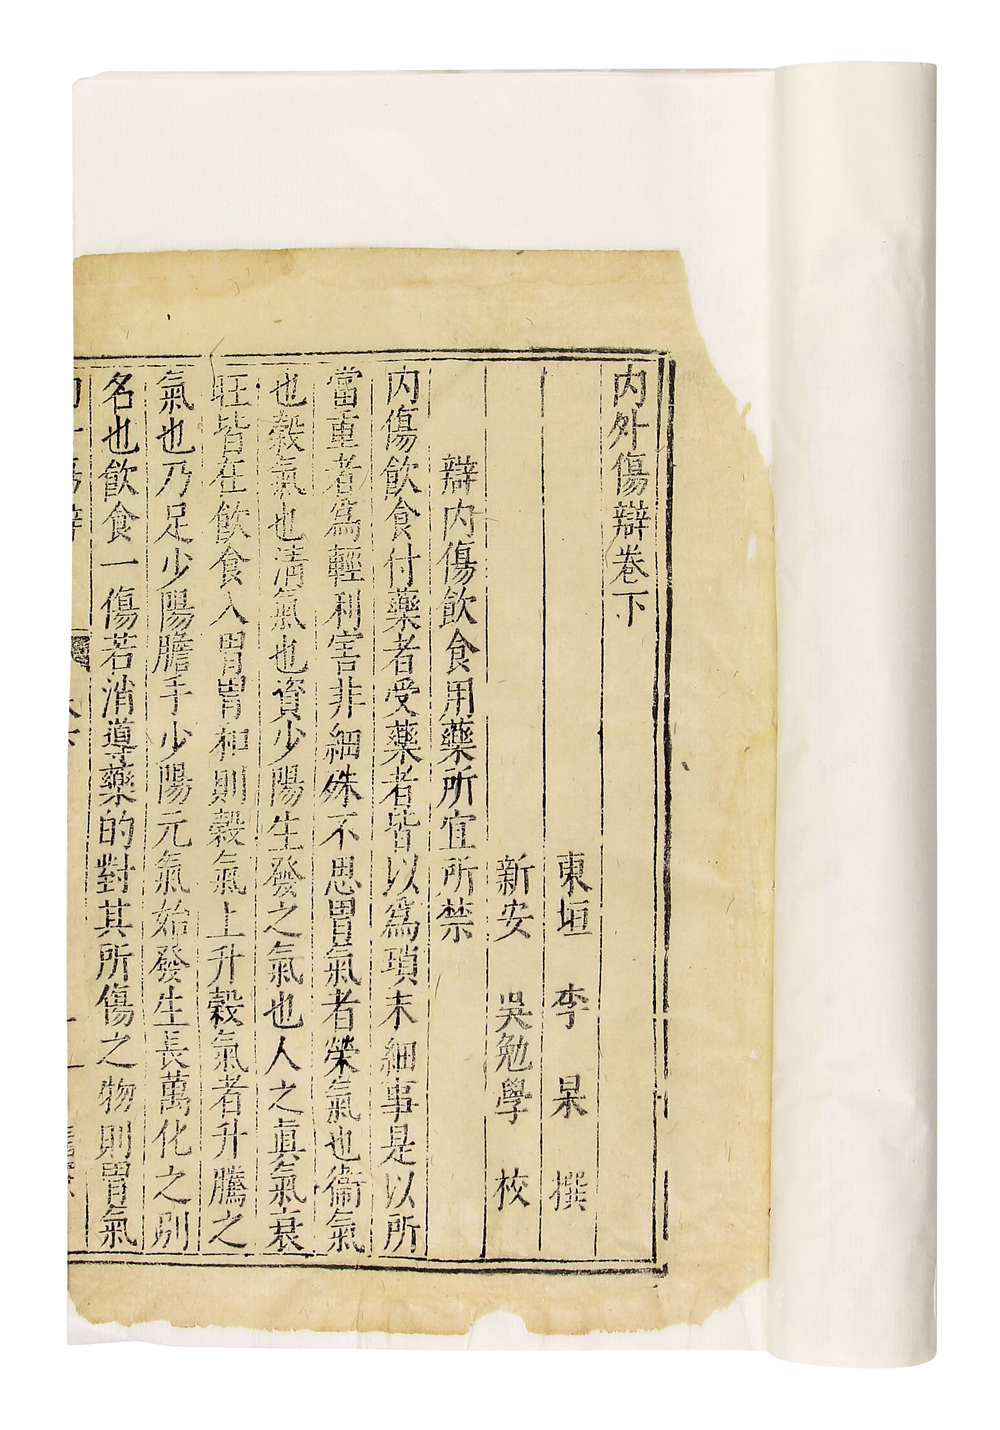 內外傷辯卷下
東垣 李 杲 撰
新安 吳勉學 校
辯內傷飲食用藥所宜所禁
內傷飲食付藥者受藥者皆以爲瑣末細事是以所
當重者爲輕利害非細殊不思胃氣者榮氣也衞氣
也穀氣也清氣也資少陽生發之氣也人之眞氣衰
旺皆在飲食入胃胃和則穀氣上升穀氣者升騰之
氣也乃足少陽膽手少陽元氣始發生長萬化之別
名也飲食一傷若消導藥的對其所傷之物則胃氣